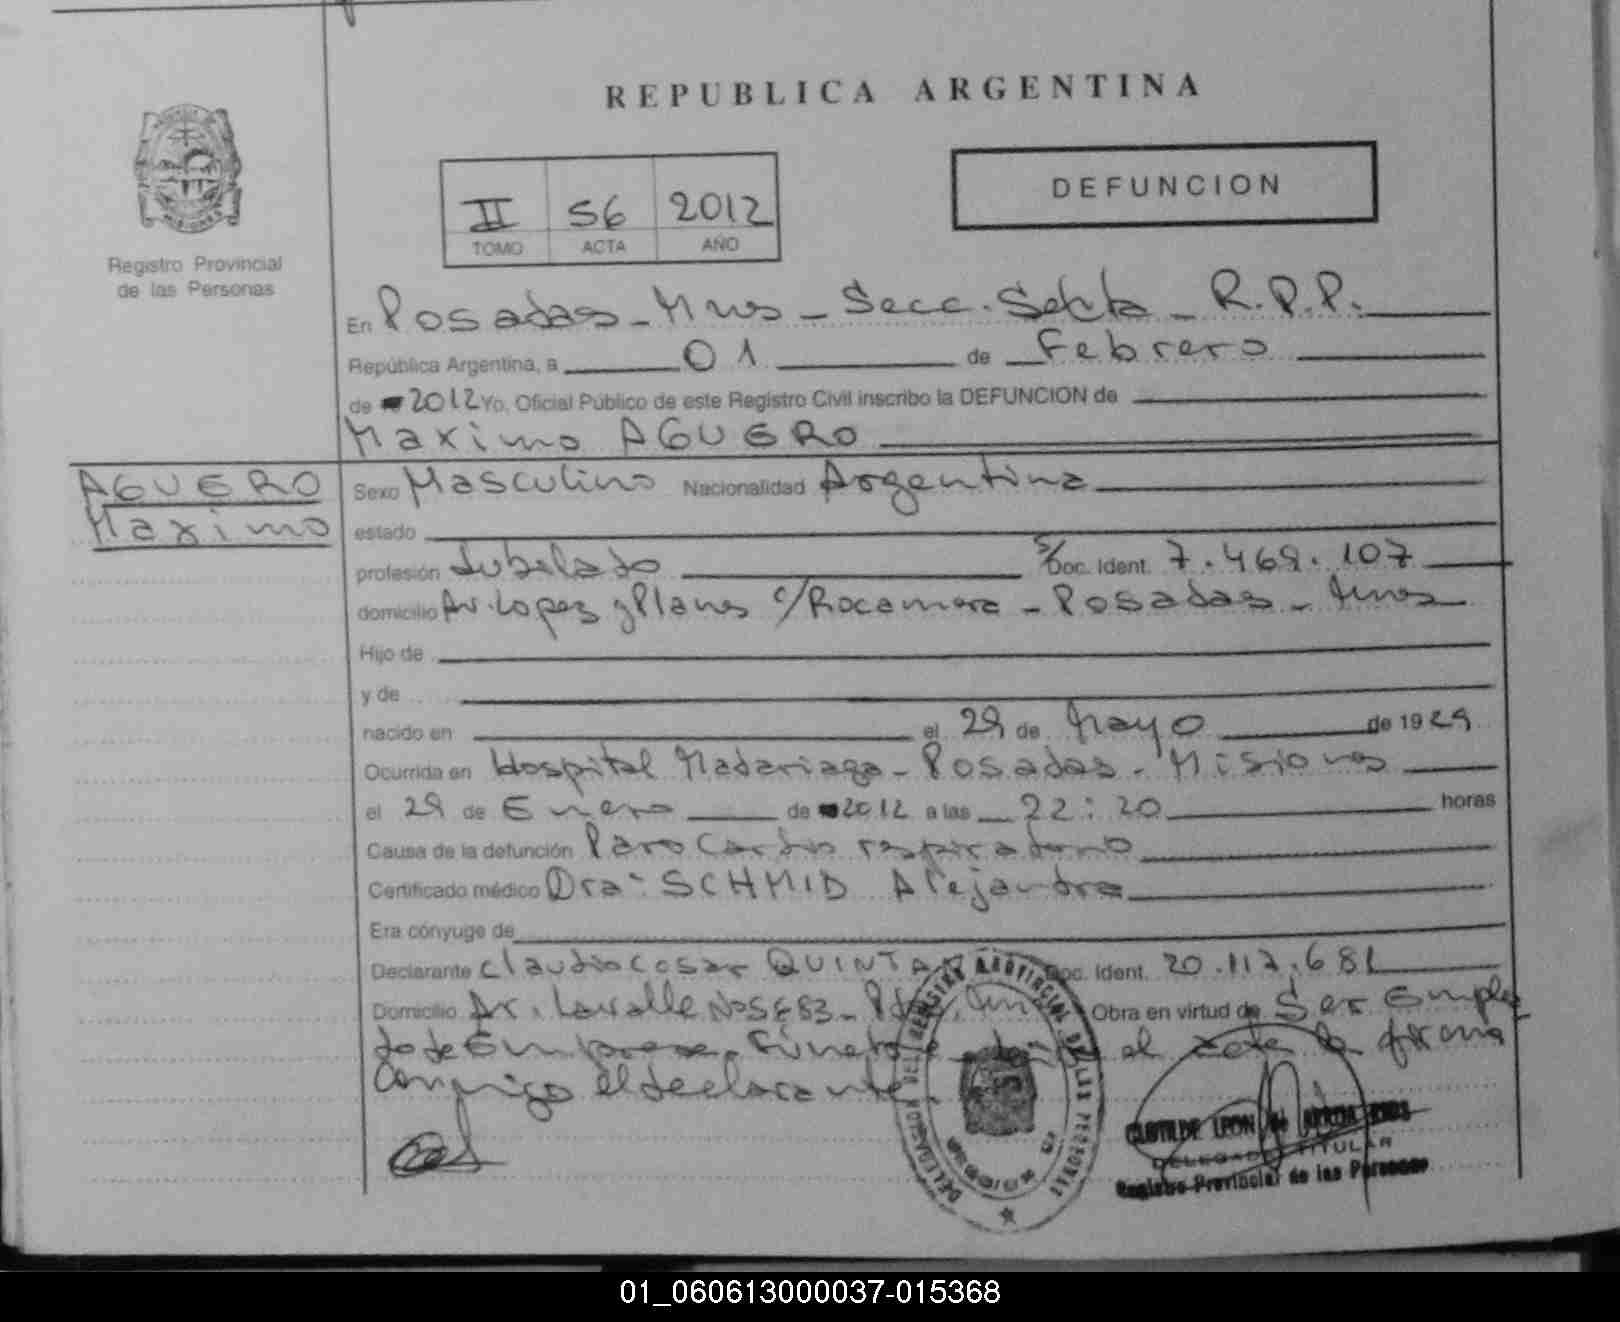 REPUBLICA ARGENTINA
Registro Provincial
de las Personas
II 56 2012
TOMO ACTA AÑO
DEFUNCION
En Posadas - Mnes - Secc. Sexta - R.P.P.
República Argentina, a 01 de Febrero
de 2012 Yo, Oficial Público de este Registro Civil inscribo la DEFUNCION de
Maximo AGUERO
AGUERO
Maximo
Sexo Masculino Nacionalidad Argentina
estado
profesión Jubilado S/Doc. Ident. 7.469.107
domicilio Av. Lopez y Planes c/Rocamora - Posadas - Mnes
Hijo de
y de
nacido en el 29 de Mayo de 1929
Ocurrida en Hospital Madariaga - Posadas - Misiones
el 29 de Enero de 2012 a las 22:20 horas
Causa de la defunción Paro Cardio respiratorio
Certificado médico Dra: SCHMID Alejandra
Era cónyuge de
Declarante Claudio Cesar QUINTANA Doc. Ident. 20.117.681
Domicilio Av. Lavalle Nº 5883 - Obra en virtud de Ser Emplea
do de Empresa Funebre el acta la firma
Conmigo el declarante
DELEGACION DEL REGISTRO PROVINCIAL DE LAS PERSONAS
CLOTILDE LEON
DELEGADO TITULAR
Registro Provincial de las Personas
01_060613000037-015368